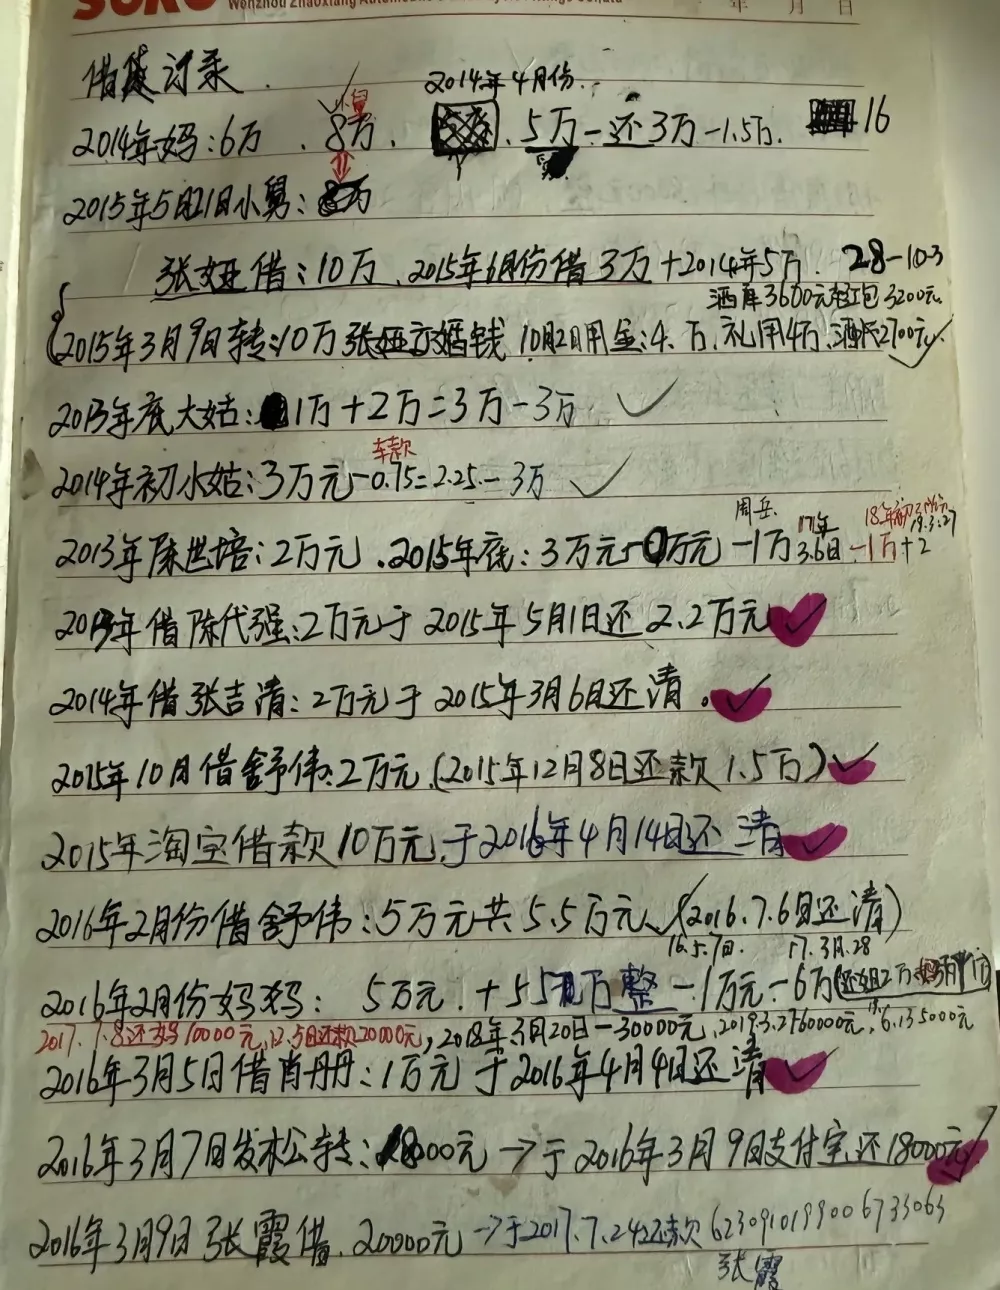 年 月 日
借贷记录
2014年4月份
小舅
2014年妈:6万、8万、5万-还3万-1.5万. 16
2015年5月21日小舅:8万
张娅借:10万、2015年6月份借3万+2014年5万. 28-10-3
酒席3600元 红包3200元
2015年3月9日转:10万张娅 婚钱 10月2日用金:4.万、礼用4万、酒 2700元
2013年底大姑:1万+2万=3万-3万
车款
2014年初小姑:3万元-0.75=2.25-3万
周岳 17年 18年 19.3.27
2013年陈世培:2万元.2015年底:3万元-0万元-1万 3.6日-1万+2
2013年借陈代强:2万元于2015年5月1日还2.2万元
2014年借张吉清:2万元于2015年3月6日还清。
2015年10月借舒伟:2万元.(2015年12月8日还款1.5万)
2015年淘宝借款10万元于2016年4月14日还清
2016年2月份借舒伟:5万元共5.5万元(2016.7.6日还清)
16.5.7日. 17.3月.28
2016年2月份妈妈: 5万元.+5.5 万整-1万元-6万(还姐2万
2017.7.8还妈10000元,12.5日还款20000元,2018年3月20日-30000元,2019.3.27 60000元, 6.13 5000元
2016年3月5日借肖册:1万元于2016年4月4日还清
2016年3月7日发林公转:18000元→于2016年3月9日支付宝还18000元
2016年3月9日张霞借.20000元→于2017.7.24还款6230910199006733063
张霞